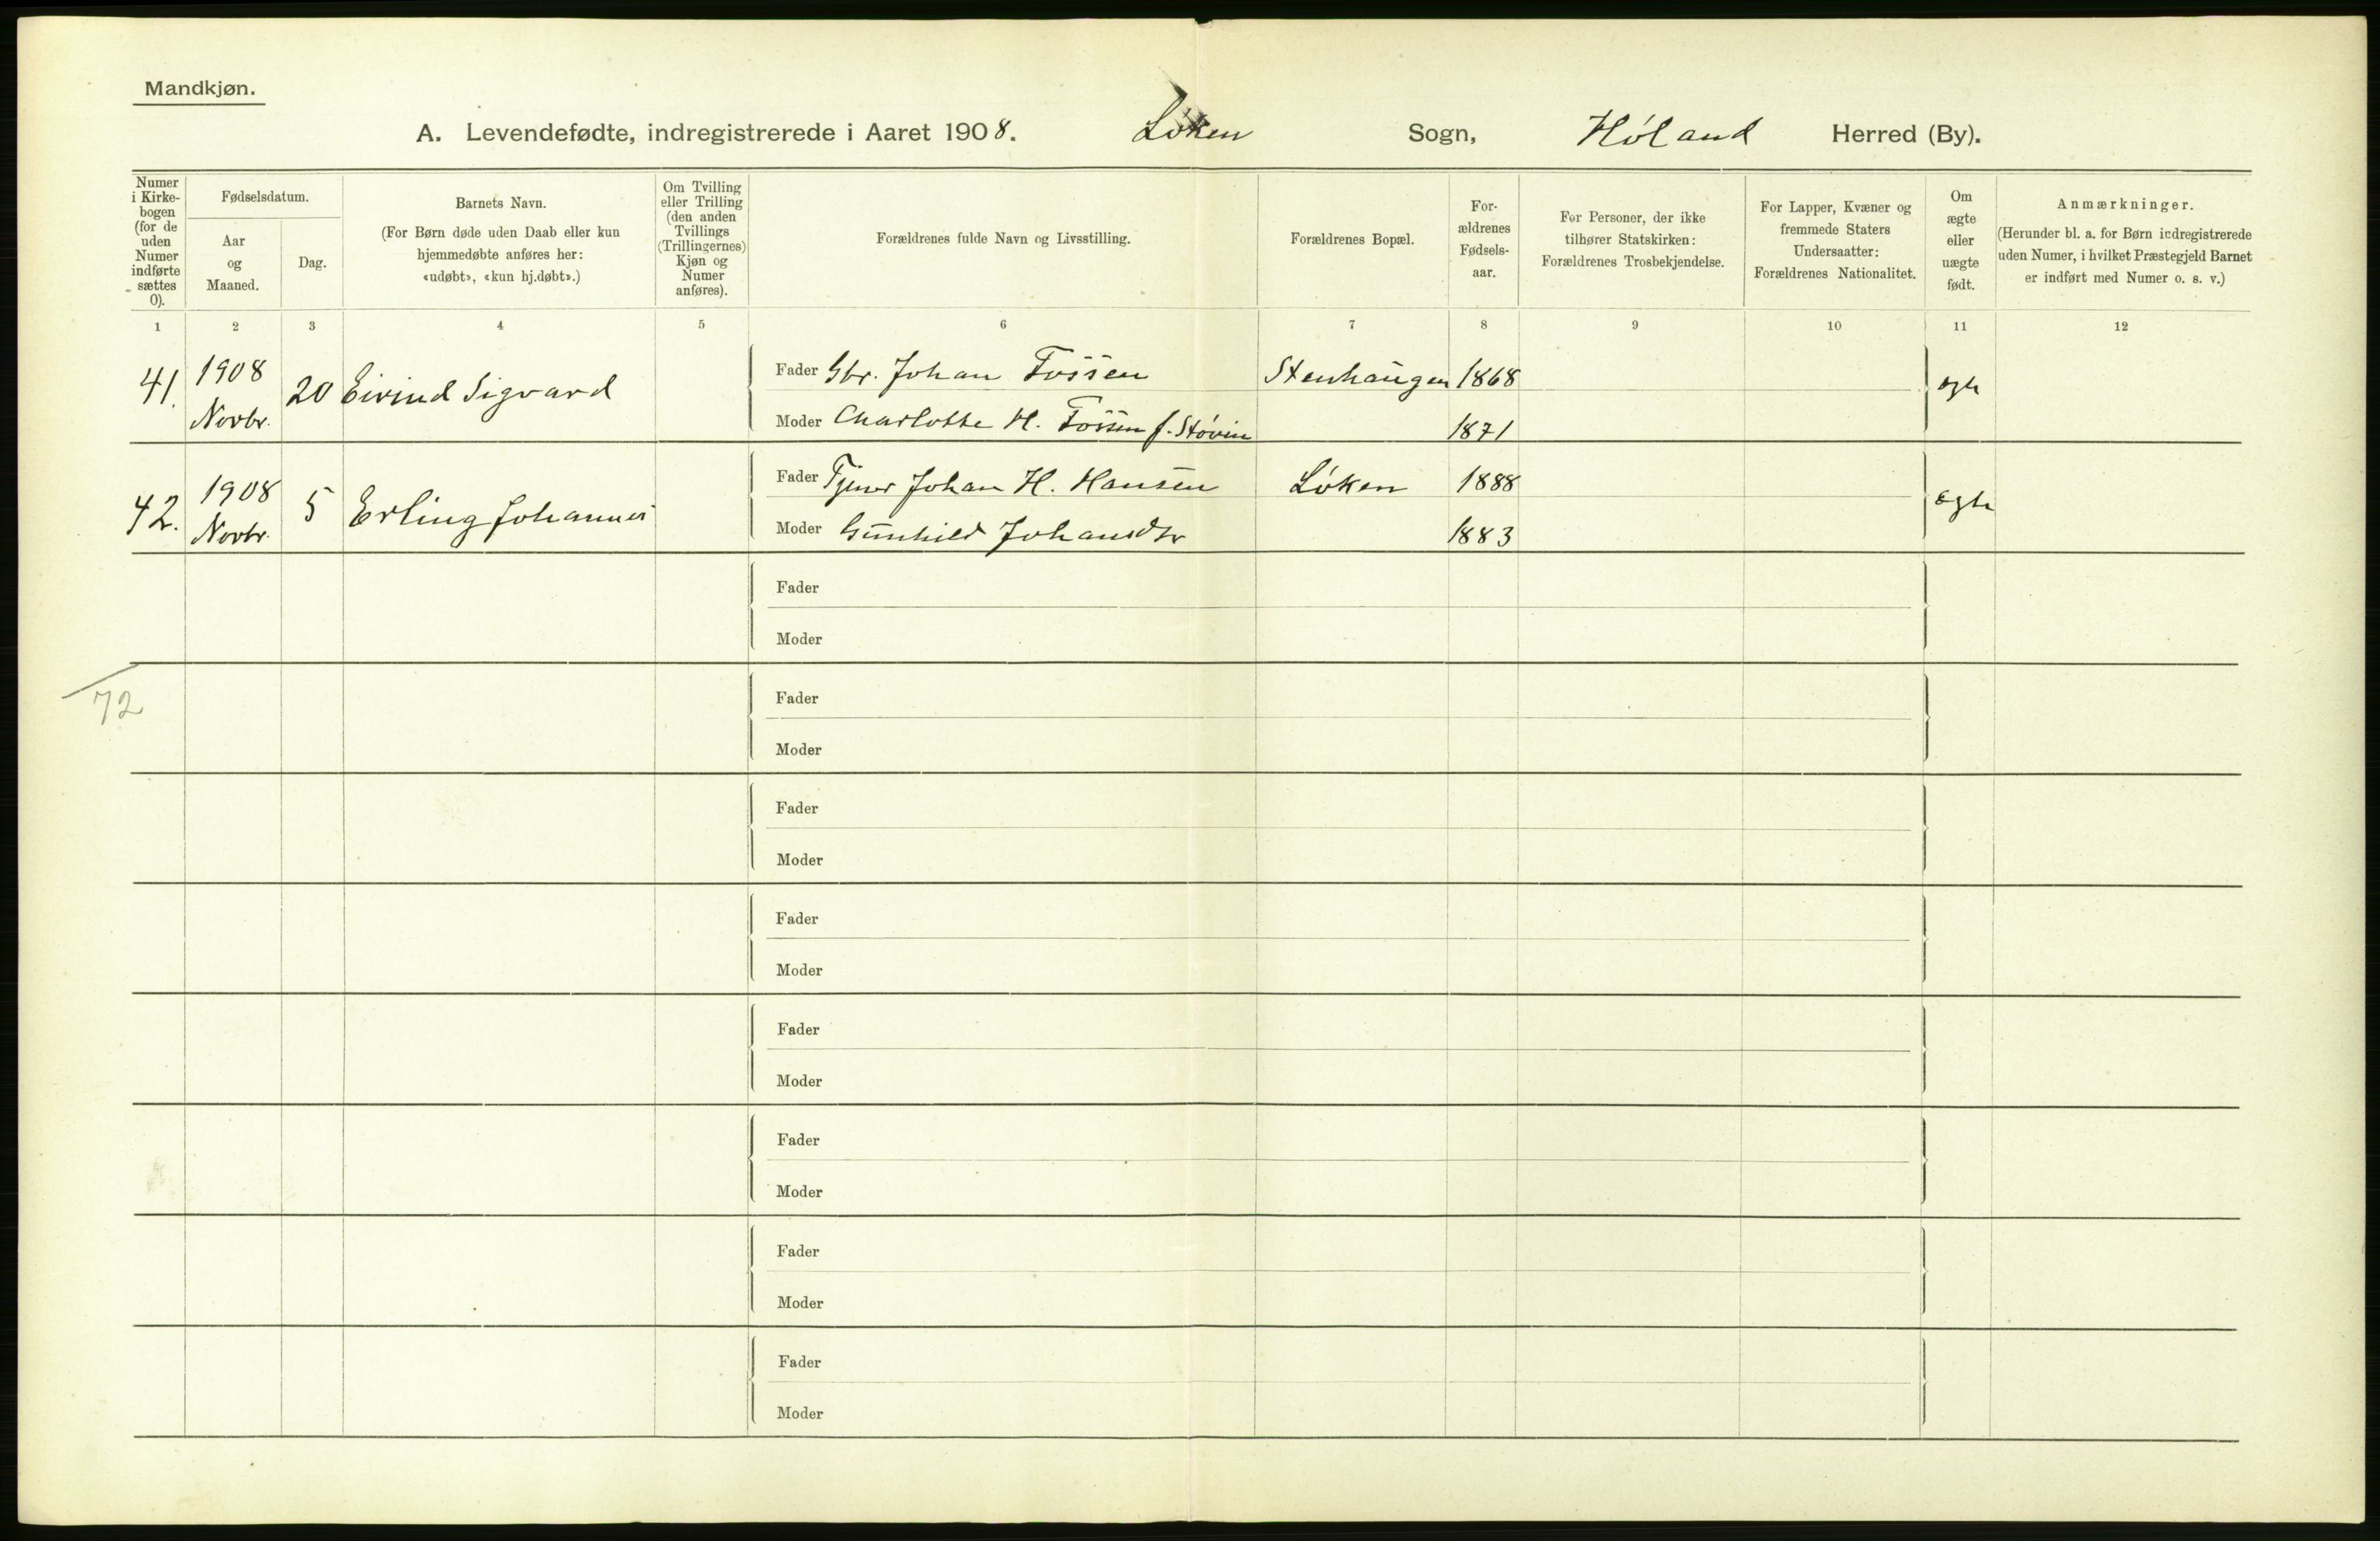 Mandkjøn.
A. Levendefødte, indregistrerede i Aaret 1908. Løken Sogn, Høland Herred (By).
Numer i Kirke- bogen (for de uden Numer indførte sættes 0).
Fødselsdatum.
Aar og Maaned.
Dag.
Barnets Navn.
(For Børn døde uden Daab eller kun
hjemmedøbte anføres her:
«udøbt», «kun hj.døbt».)
Om Tvilling
eller Trilling
(den anden
Tvillings
(Trillingernes)
Kjøn og
Numer
anføres).
Forældrenes fulde Navn og Livsstilling.
Forældrenes Bopæl.
For-
ældrenes
Fødsels-
aar.
For Personer, der ikke
tilhører Statskirken:
Forældrenes Trosbekjendelse.
For Lapper, Kvæner og
fremmede Staters
Undersaatter:
Forældrenes Nationalitet.
Om
ægte
eller
uægte
født.
Anmærkninger.
(Herunder bl. a. for Børn indregistrerede
uden Numer, i hvilket Præstegjeld Barnet
er indført med Numer o. s. v.)
1 2 3 4 5 6 7 8 9 10 11 12
41. 1908 Novbr. 20 Eivind Sigvard
Fader Gbr. Johan Fossen Stenhaugen 1868 ægte
Moder Charlotte H. Fossen f. Støvin 1871
42. 1908 Novbr. 5 Erling Johannes
Fader Tjener Johan H. Hansen Løken 1888 ægte
Moder Gunhild Johansdtr 1883
Fader
Moder
72
Fader
Moder
Fader
Moder
Fader
Moder
Fader
Moder
Fader
Moder
Fader
Moder
Fader
Moder